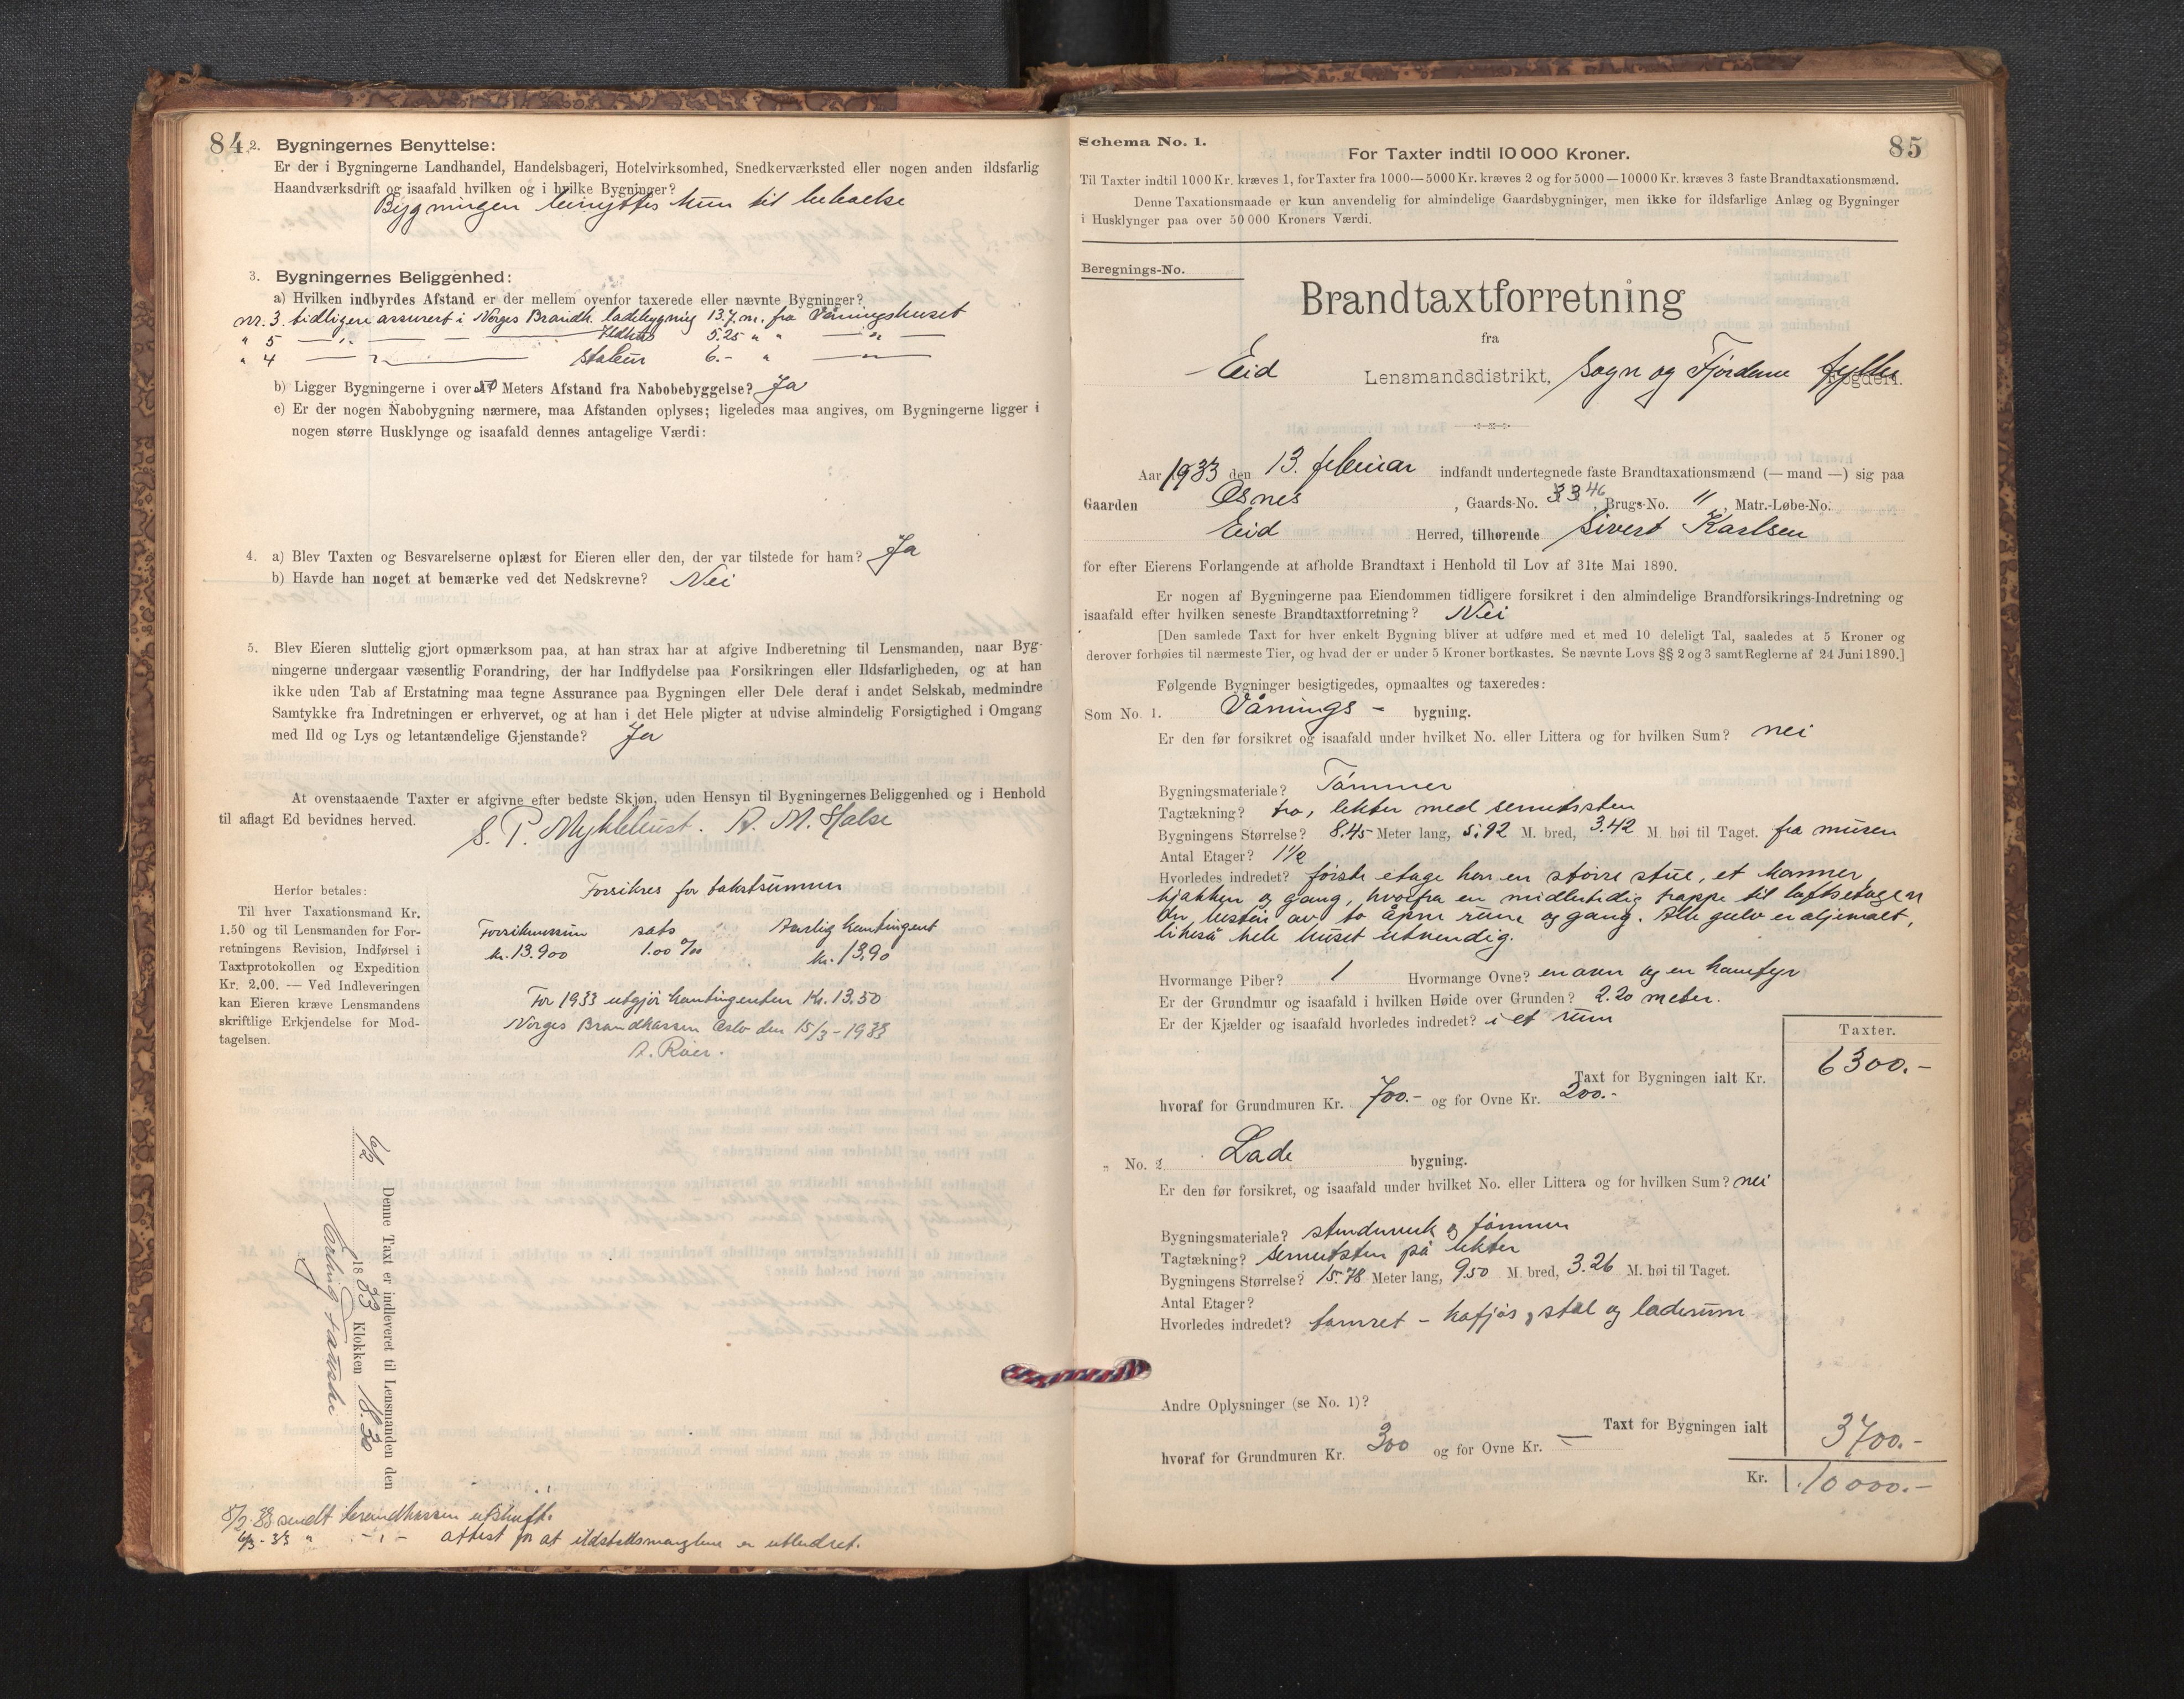 84
2. Bygningernes Benyttelse:
Er der i Bygningerne Landhandel, Handelsbageri, Hotelvirksomhed, Snedkerværksted eller nogen anden ildsfarlig
Haandværksdrift og isaafald hvilken og i hvilke Bygninger?
Bygningen benyttes kun til beboelse
3. Bygningernes Beliggenhed:
a) Hvilken indbyrdes Afstand er der mellem ovenfor taxerede eller nævnte Bygninger?
nr. 3 tidligere assurert i Norges Brandk. ladebygning 13.7 m. fra Våningshuset
" 5 — " — Ildhus 5.25 " " — " —
" 4 — " — Stabur 6.- " — " —
b) Ligger Bygningerne i over 50 Meters Afstand fra Nabobebyggelse? Ja
c) Er der nogen Nabobygning nærmere, maa Afstanden oplyses; ligeledes maa angives, om Bygningerne ligger i
nogen større Husklynge og isaafald dennes antagelige Værdi:
4. a) Blev Taxten og Besvarelserne oplæst for Eieren eller den, der var tilstede for ham? Ja
b) Havde han noget at bemærke ved det Nedskrevne? Nei
5. Blev Eieren sluttelig gjort opmærksom paa, at han strax har at afgive Indberetning til Lensmanden, naar Byg-
ningerne undergaar væsentlig Forandring, der har Indflydelse paa Forsikringen eller Ildsfarligheden, og at han
ikke uden Tab af Erstatning maa tegne Assurance paa Bygningen eller Dele deraf i andet Selskab, medmindre
Samtykke fra Indretningen er erhvervet, og at han i det Hele pligter at udvise almindelig Forsigtighed i Omgang
med Ild og Lys og letantændelige Gjenstande? Ja
At ovenstaaende Taxter er afgivne efter bedste Skjøn, uden Hensyn til Bygningernes Beliggenhed og i Henhold
til aflagt Ed bevidnes herved.
S. P. Myklebust. R. M. Halse
Herfor betales:
Til hver Taxationsmand Kr.
1.50 og til Lensmanden for For-
retningens Revision, Indførsel i
Taxtprotokollen og Expedition
Kr. 2.00. — Ved Indleveringen
kan Eieren kræve Lensmandens
skriftlige Erkjendelse for Mod-
tagelsen.
Forsikres for takstsummen
Forsikrssum sats Aarlig kontingent
kr. 13.900 1.00 ‰ kr. 13,90
For 1933 utgjør kontingenten Kr. 13.50
Norges Brandkasse Oslo den 15/3 - 1933
Denne Taxt er indleveret til Lensmanden den
1833 Klokken 18.30
8/2-33 sendt brandkassen utskrift.
6/3-33 " -"- attest for at ildstedsmanglene er utbedret.
85
Schema No. 1.
For Taxter indtil 10 000 Kroner.
Til Taxter indtil 1000 Kr. kræves 1, for Taxter fra 1000—5000 Kr. kræves 2 og for 5000—10000 Kr. kræves 3 faste Brandtaxationsmænd.
Denne Taxationsmaade er kun anvendelig for almindelige Gaardsbygninger, men ikke for ildsfarlige Anlæg og Bygninger
i Husklynger paa over 50 000 Kroners Værdi.
Beregnings-No.
Brandtaxtforretning
fra
Eid Lensmandsdistrikt, Sogn og Fjordane fylke Fogderi.
Aar 1933 den 13. februar indfandt undertegnede faste Brandtaxationsmænd (— mand —) sig paa
Gaarden Osnes, Gaards-No. 33 46, Brugs-No. 11, Matr.-Løbe-No.
Eid Herred, tilhørende Sivert Karlsen
for efter Eierens Forlangende at afholde Brandtaxt i Henhold til Lov af 31te Mai 1890.
Er nogen af Bygningerne paa Eiendommen tidligere forsikret i den almindelige Brandforsikrings-Indretning og
isaafald efter hvilken seneste Brandtaxtforretning? Nei
[Den samlede Taxt for hver enkelt Bygning bliver at udføre med et med 10 deleligt Tal, saaledes at 5 Kroner og
derover forhøies til nærmeste Tier, og hvad der er under 5 Kroner bortkastes. Se nævnte Lovs §§ 2 og 3 samt Reglerne af 24 Juni 1890.]
Følgende Bygninger besigtigedes, opmaaltes og taxeredes:
Som No. 1. Vånings- bygning.
Er den før forsikret og isaafald under hvilket No. eller Littera og for hvilken Sum? nei
Bygningsmateriale? Tømmer
Tagtækning? tro, lekter med sementsten
Bygningens Størrelse? 8.45 Meter lang, 5.92 M. bred, 3.42 M. høi til Taget. fra muren
Antal Etager? 1½
Hvorledes indredet? første etage har en større stue, et kammer,
kjøkken og gang, hvorfra en midlertidig trappe til loftsetagen
der består av to åpne rum og gang. Alle gulv er oljemalt,
likeså hele huset utvendig.
Hvormange Piber? 1 Hvormange Ovne? en ovn og en komfyr
Er der Grundmur og isaafald i hvilken Høide over Grunden? 2.20 meter.
Er der Kjælder og isaafald hvorledes indredet? i et rum
Taxter.
Taxt for Bygningen ialt Kr. 6300.-
hvoraf for Grundmuren Kr. 700.- og for Ovne Kr. 200.-
" No. 2 Lade bygning.
Er den før forsikret, og isaafald under hvilket No. eller Littera og for hvilken Sum? nei
Bygningsmateriale? stenderverk og tømmer
Tagtækning? sementsten på lekter
Bygningens Størrelse? 15.78 Meter lang, 9.50 M. bred, 3.26 M. høi til Taget.
Antal Etager?
Hvorledes indredet? tomret - kofjøs, stal og laderum
Andre Oplysninger (se No. 1)?
Taxt for Bygningen ialt 3700.-
hvoraf for Grundmuren Kr. 300 og for Ovne Kr. —
Kr. 10 000.-